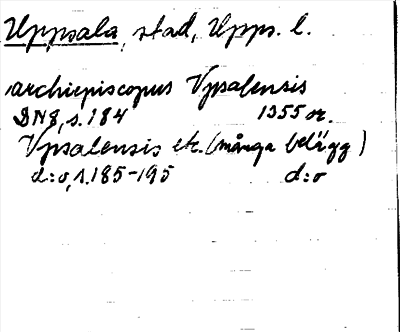 Uppsala, stad, Upps. l.
archiepiscopus Vpsalensis
DN8, s. 184 1355 or.
Vpsalensis etc. (många belägg)
d:o, s. 185-195 d:o